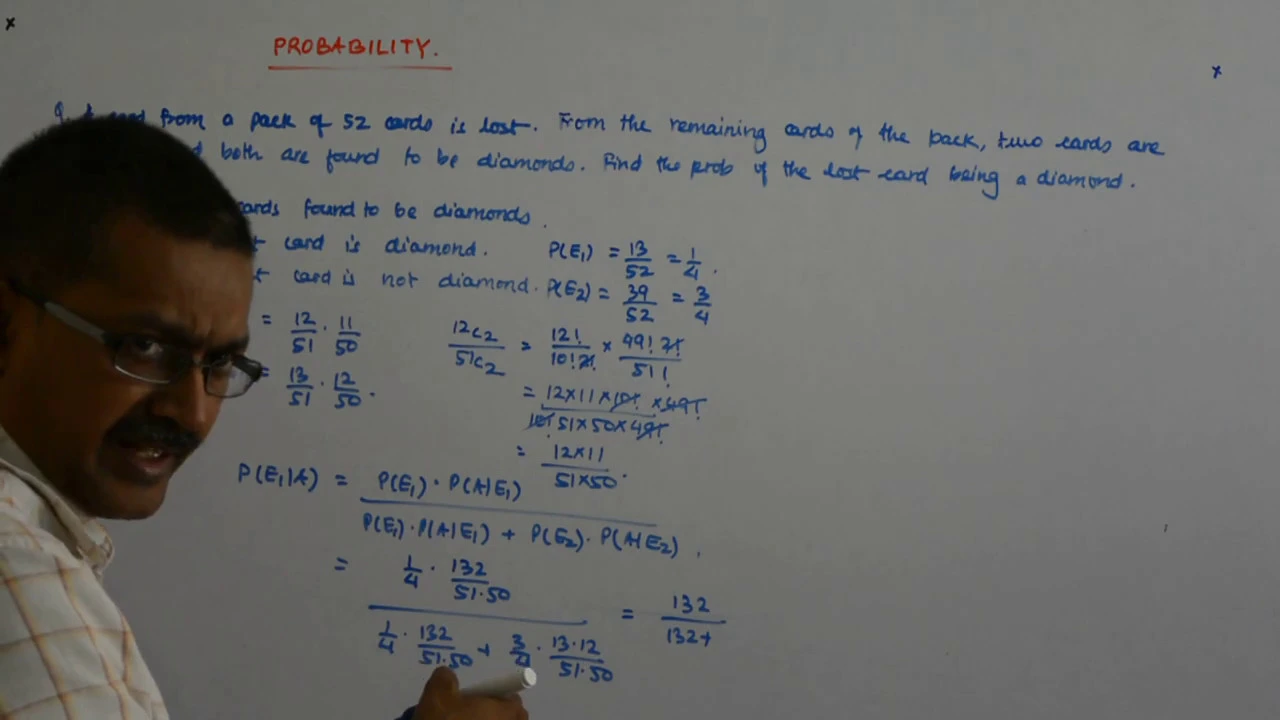 PROBABILITY.
Q. from a pack of 52 cards is lost. From the remaining cards of the pack, two cards are
both are found to be diamonds. Find the prob of the lost card being a diamond.
cards found to be diamonds.
card is diamond. P(E₁) = 13/52 = 1/4.
card is not diamond. P(E₂) = 39/52 = 3/4
= 12/51 · 11/50
12C₂/51C₂ = 12!/10!2! × 49!2!/51!
= 13/51 · 12/50.
= 12×11×10!×49!/10!51×50×49!
= 12×11/51×50.
P(E₁|A) = P(E₁)·P(A|E₁)/P(E₁)·P(A|E₁) + P(E₂)·P(A|E₂).
= 1/4 · 132/51·50 / 1/4 · 132/51·50 + 3/4 · 13·12/51·50 = 132/132+